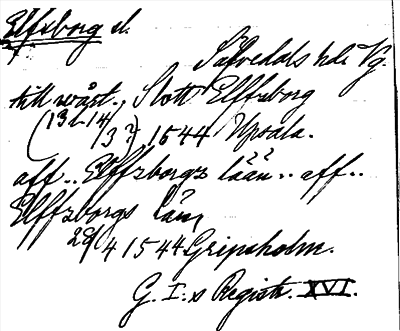 Elfsborg sl.
Säfvedals hd. Vg.
till wårt.. Slott Elffzborg
(13 l. 14/3?) 1544 Upsala.
aff.. Elffzborgz lään.. aff..
Elffzborgs län,
29/4 1544 Gripsholm.
G. I:s Registr. XVI.